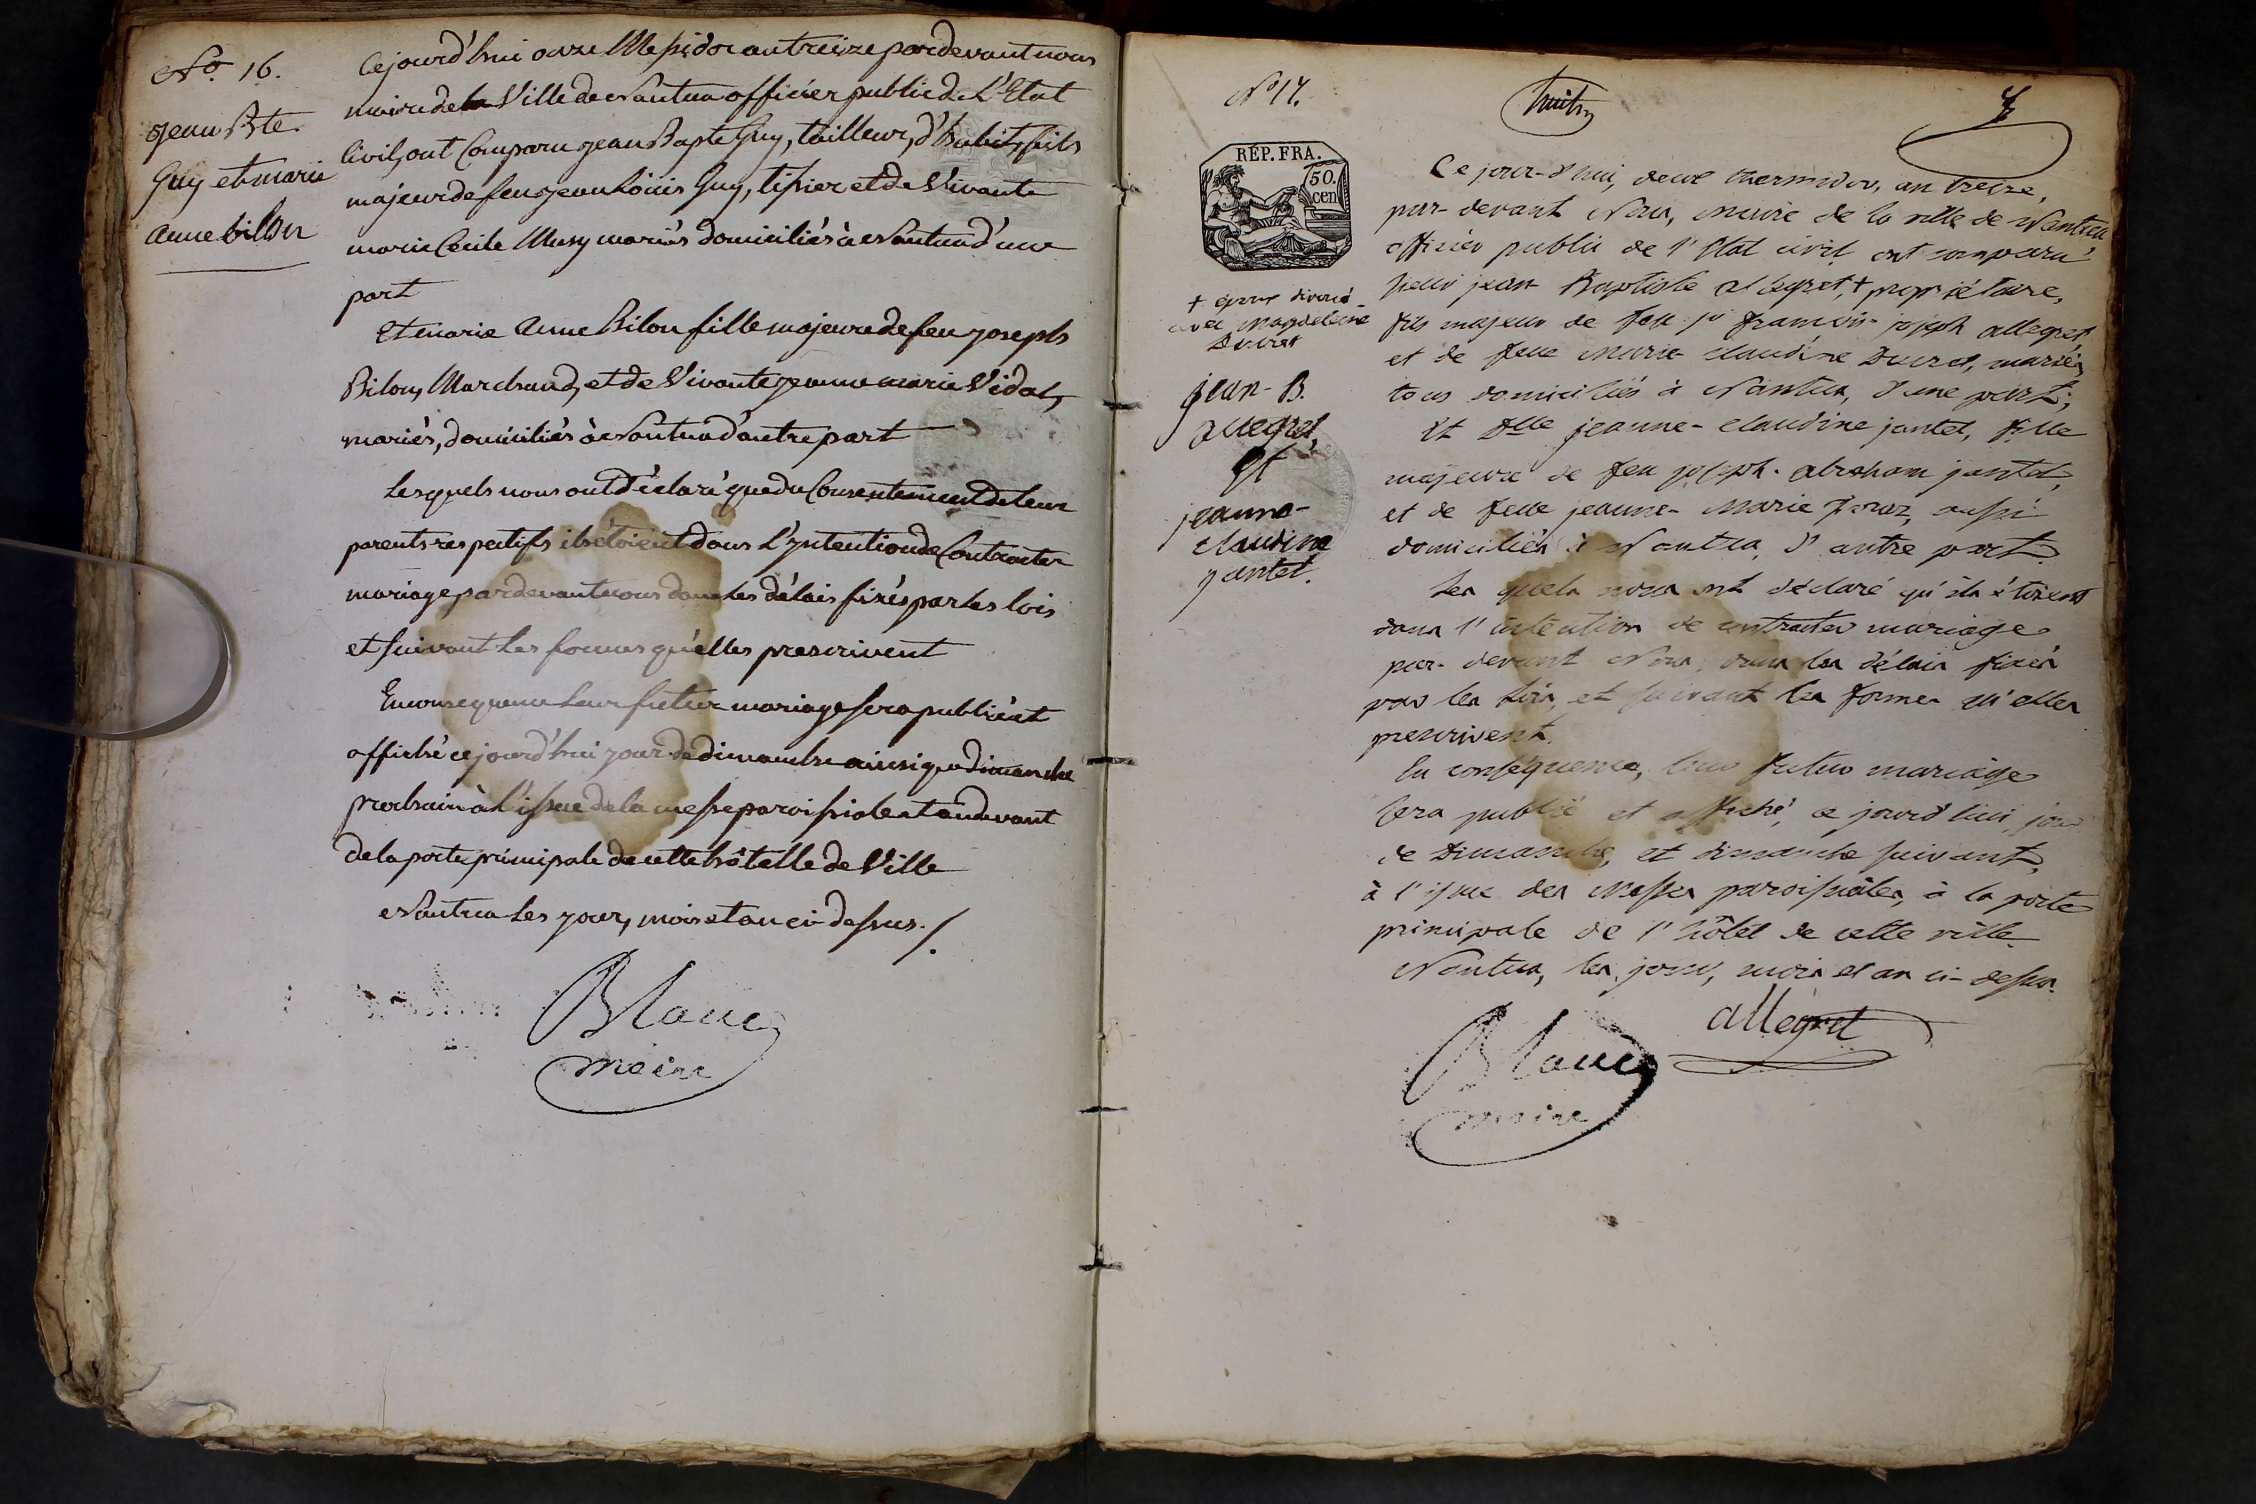 No. 16.
Jean Bte.
Guy et marie
anne billon
Cejourd'hui onze Messidor an treize pardevant nous
maire de la Ville de Nantua officier public de L'Etat
Civil, ont Comparu jean Bapte Guy, tailleur, d'habits, fils
majeur de feu jean Loüis Guy, tissier et de Vivante
marie Cecile Musy mariés domiciliés à Nantua d'une
part
Et marie Anne Bilon fille majeure de feu joseph
Bilon, Marchand, et de Vivante jeanne marie Vidal,
mariés, domiciliés à Nantua d'autre part
Lesquels nous ont Déclaré que du Consentement de leur
parents respectifs ils étoient dans L'yntention de Contracter
mariage pardevant nous dans les délais fixés par les lois
et suivant les formes qu'elles prescrivent
En consequence leur futur mariage sera publié et
affiché ce jourd'hui jour de dimanche ainsi que dimanche
prochain à l'issue de la messe paroissiale et au devant
de la porte principale de cette hôtelle de Ville
Nantua les jour, mois et an ci dessus ./.
Blanc
maire
No 17.
huit
RÉP. FRA.
50.
cen
+ époux divorcé
avec Magdeleine
Ducret
jean-B.
allegret,
Et
jeanne-
claudine
jantet.
Ce jour-d'hui, deux thermidor, an treize,
par-devant Nous, maire de la ville de Nantua
officier public de l'Etat civil ont comparu
sieur jean-Baptiste allegret, + propriétaire,
fils majeur de feu sr françois-joseph allegret
et de feue Marie claudine Ducret, mariés,
tous domiciliés à Nantua, d'une part;
Et Dlle jeanne-claudine jantet, fille
majeure de feu joseph-abraham jantet,
et de feue jeanne-Marie, aussi
domiciliés à Nantua, d'autre part.
Les quels nous ont déclaré qu'ils étoient
dans l'intention de contracter mariage
par-devant Nous, dans les délais fixés
par les loix, et suivant les formes qu'elles
prescrivent.
En conséquence, leur futur mariage
sera publié et affiché, ce jourd'hui, jour
de Dimanche, et dimanche suivant,
à l'issue des Messes paroissiales, à la porte
principale de l'hôtel de cette ville.
Nantua, les jour, mois et an ci-dessus.
allegret
Blanc
maire